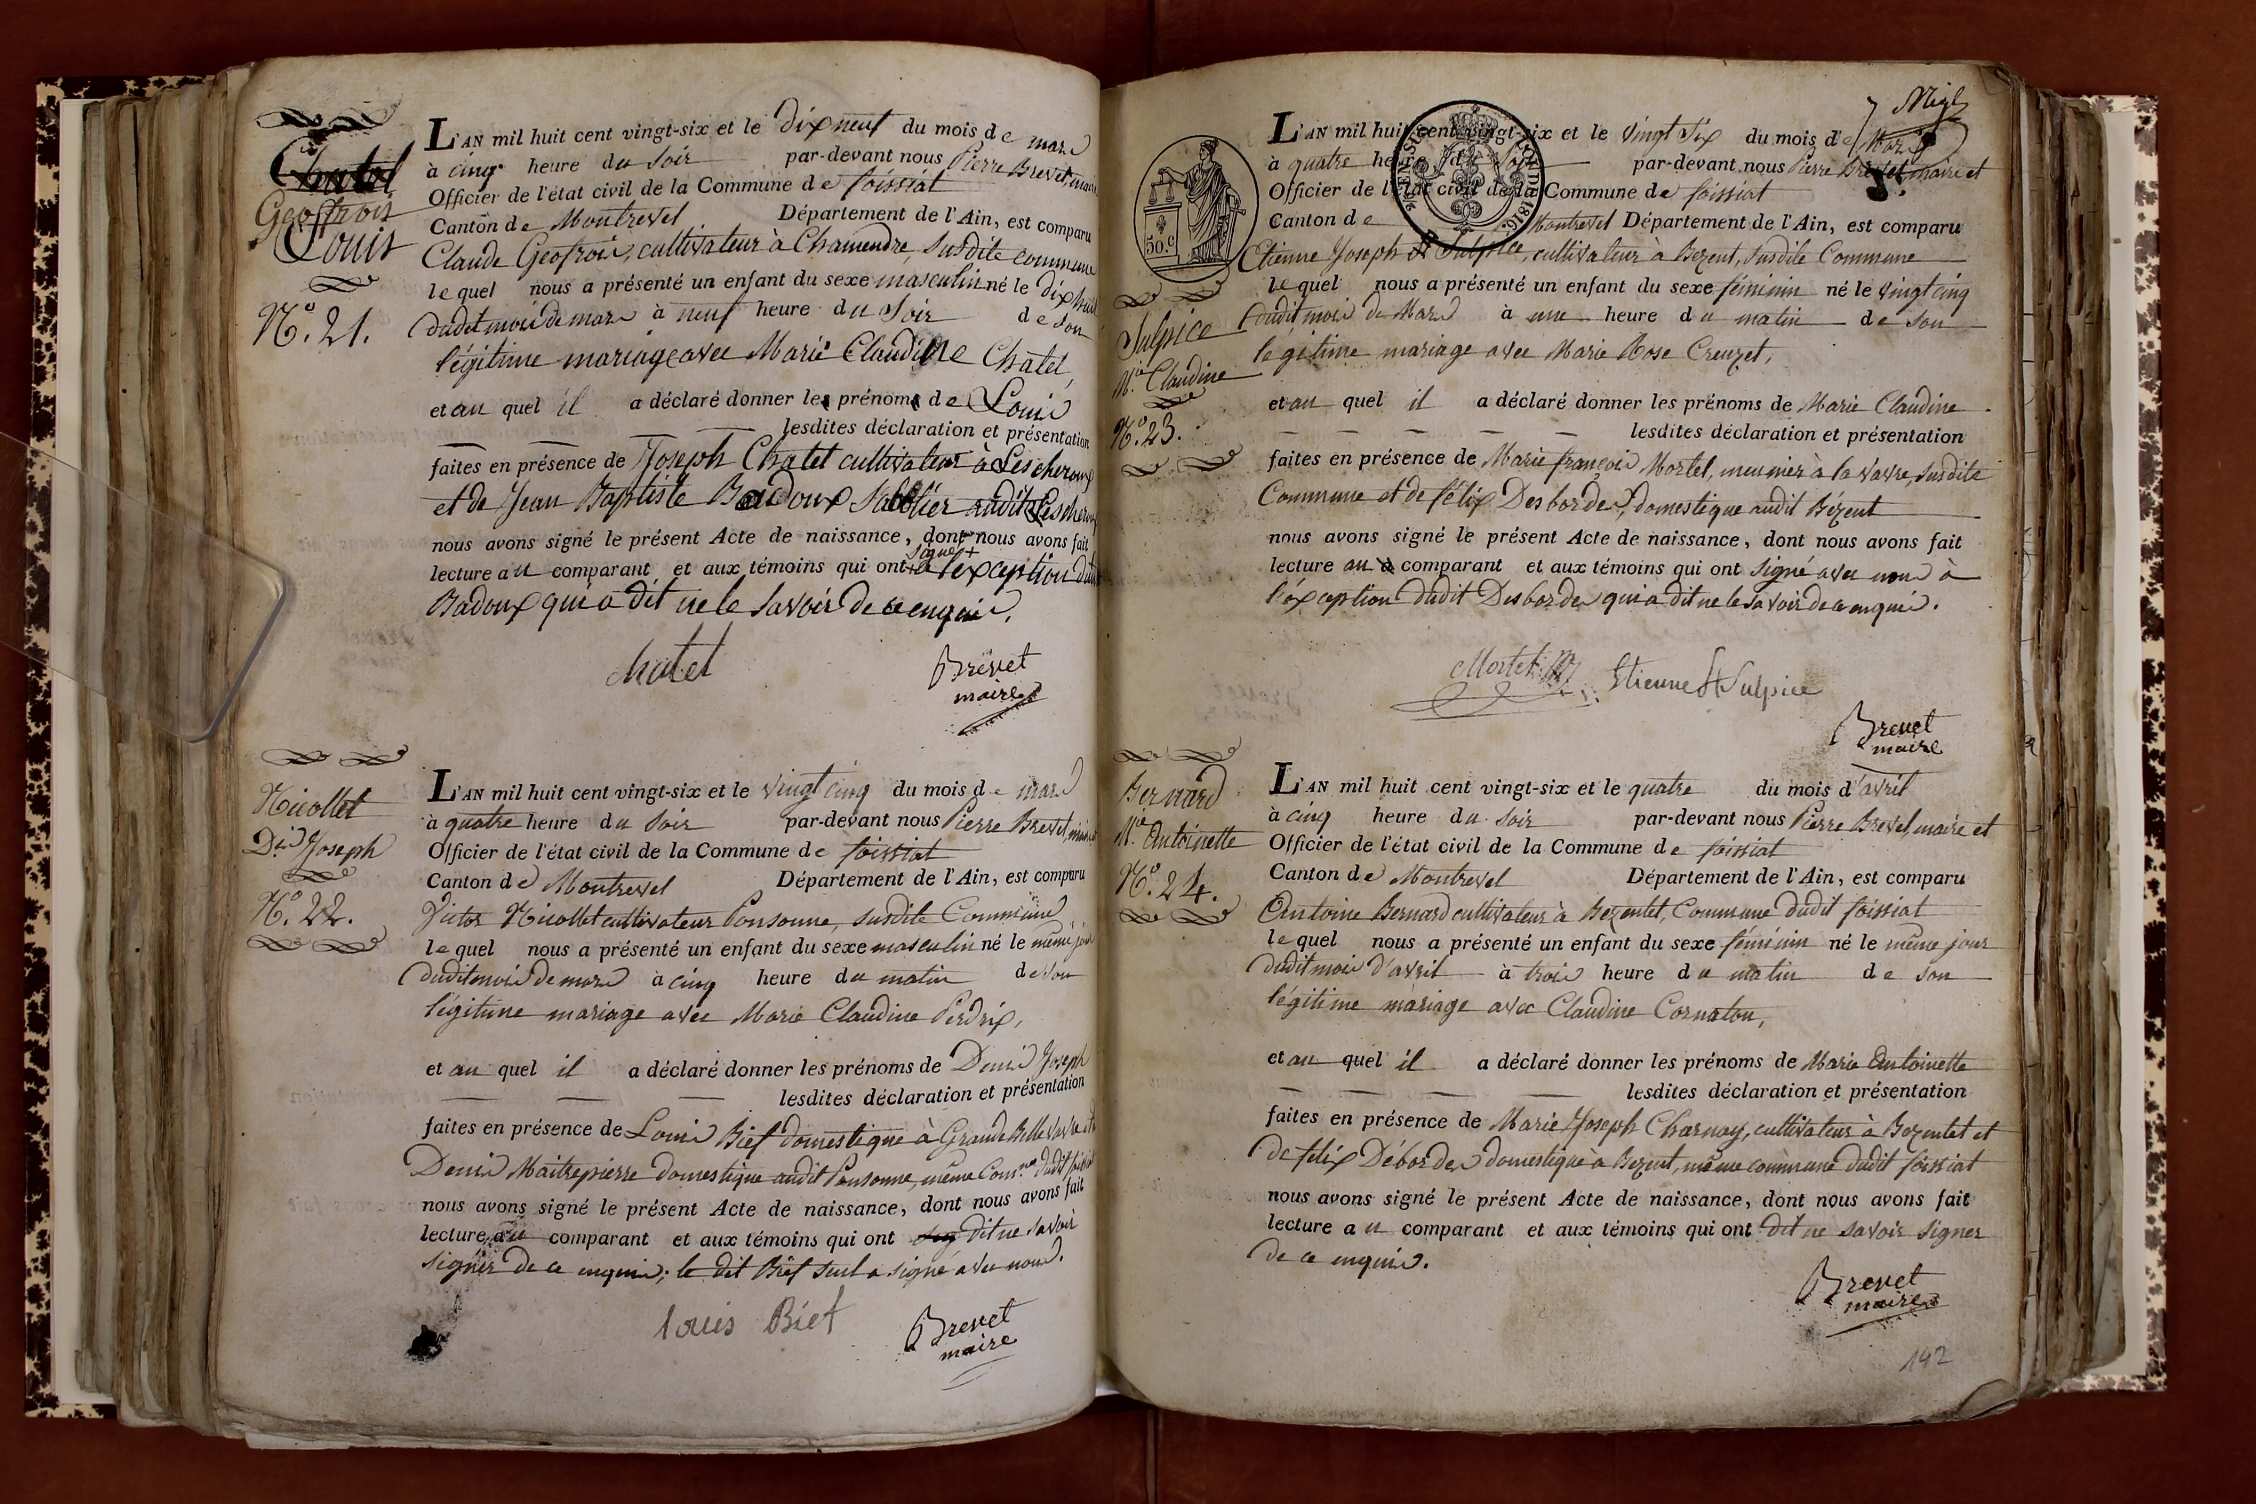 Chatel
Geofrois
Louis
N.° 21.
L'AN mil huit cent vingt-six et le dix neuf du mois de mars
à cinq heure du soir par-devant nous Pierre Brevet maire
Officier de l'état civil de la Commune de foissiat
Canton de Montrevel Département de l'Ain, est comparu
Claude Geofrois, cultivateur à Chamendre, susdite commune
lequel nous a présenté un enfant du sexe masculin né le dix huit
dudit mois de mars à neuf heure du soir de son
légitime mariage avec Marie Claudine Chatel,
et au quel il a déclaré donner les prénoms de Louis
lesdites déclaration et présentation
faites en présence de Joseph Chatel cultivateur à Lescheroux
et de Jean Baptiste Badoux sabotier audit Lescheroux
nous avons signé le présent Acte de naissance, dont nous avons fait
lecture au comparant et aux témoins qui ont signé à l'exception dudit
Badoux qui a dit ne le savoir de ce enquis.
chatel
Brevet
maire
Nicollet
Dis Joseph
N.° 22.
L'AN mil huit cent vingt-six et le vingt cinq du mois de mars
à quatre heure du soir par-devant nous Pierre Brevet, maire et
Officier de l'état civil de la Commune de foissiat
Canton de Montrevel Département de l'Ain, est comparu
Victor Nicollet cultivateur Ponsonne, susdite Commune
lequel nous a présenté un enfant du sexe masculin né le même jour
dudit mois de mars à cinq heure du matin de son
légitime mariage avec Marie Claudine Perdrix,
et au quel il a déclaré donner les prénoms de Denis Joseph
lesdites déclaration et présentation
faites en présence de Louis Bief domestique à Grande Bellevavre et
Denis Maitrepierre domestique audit Ponsonne, même Comne dudit foissiat
nous avons signé le présent Acte de naissance, dont nous avons fait
lecture au comparant et aux témoins qui ont dit ne savoir
signer de ce enquis; le dit Bief seul a signé avec nous.
louis Bief
Brevet
maire
50.c
TIMBRE ROYAL
LOI DE 1816
Sulpice
M.ie Claudine
N.° 23.
L'AN mil huit cent vingt-six et le vingt six du mois de Mars
à quatre heure du soir par-devant nous Pierre Brevet maire et
Officier de l'état civil de la Commune de foissiat
Canton de Montrevel Département de l'Ain, est comparu
Etienne Joseph St Sulpice, cultivateur à Bezent, susdite Commune
lequel nous a présenté un enfant du sexe féminin né le vingt cinq
dudit mois de Mars à une heure du matin de son
légitime mariage avec Marie Rose Creuzet,
et au quel il a déclaré donner les prénoms de Marie Claudine
lesdites déclaration et présentation
faites en présence de Marie françois Mortel, meunier à la vavre, susdite
Commune et de félix Desbordes, domestique audit Bézent
nous avons signé le présent Acte de naissance, dont nous avons fait
lecture au comparant et aux témoins qui ont signé avec nous à
l'exception dudit Desbordes qui a dit ne le savoir de ce enquis.
Mortel
Etienne St Sulpice
Brevet
maire
Bernard
M.ie Antoinette
N.° 24.
L'AN mil huit cent vingt-six et le quatre du mois d'avril
à cinq heure du soir par-devant nous Pierre Brevet, maire et
Officier de l'état civil de la Commune de foissiat
Canton de Montrevel Département de l'Ain, est comparu
Antoine Bernard cultivateur à Bezentet, Commune dudit foissiat
lequel nous a présenté un enfant du sexe féminin né le même jour
dudit mois d'avril à trois heure du matin de son
légitime mariage avec Claudine Cornaton,
et au quel il a déclaré donner les prénoms de Marie Antoinette
lesdites déclaration et présentation
faites en présence de Marie Joseph Charnay, cultivateur à Bezentet et
de félix Débordes domestique à Bezent, même commune dudit foissiat
nous avons signé le présent Acte de naissance, dont nous avons fait
lecture au comparant et aux témoins qui ont dit ne savoir signer
de ce enquis.
Brevet
maire
192